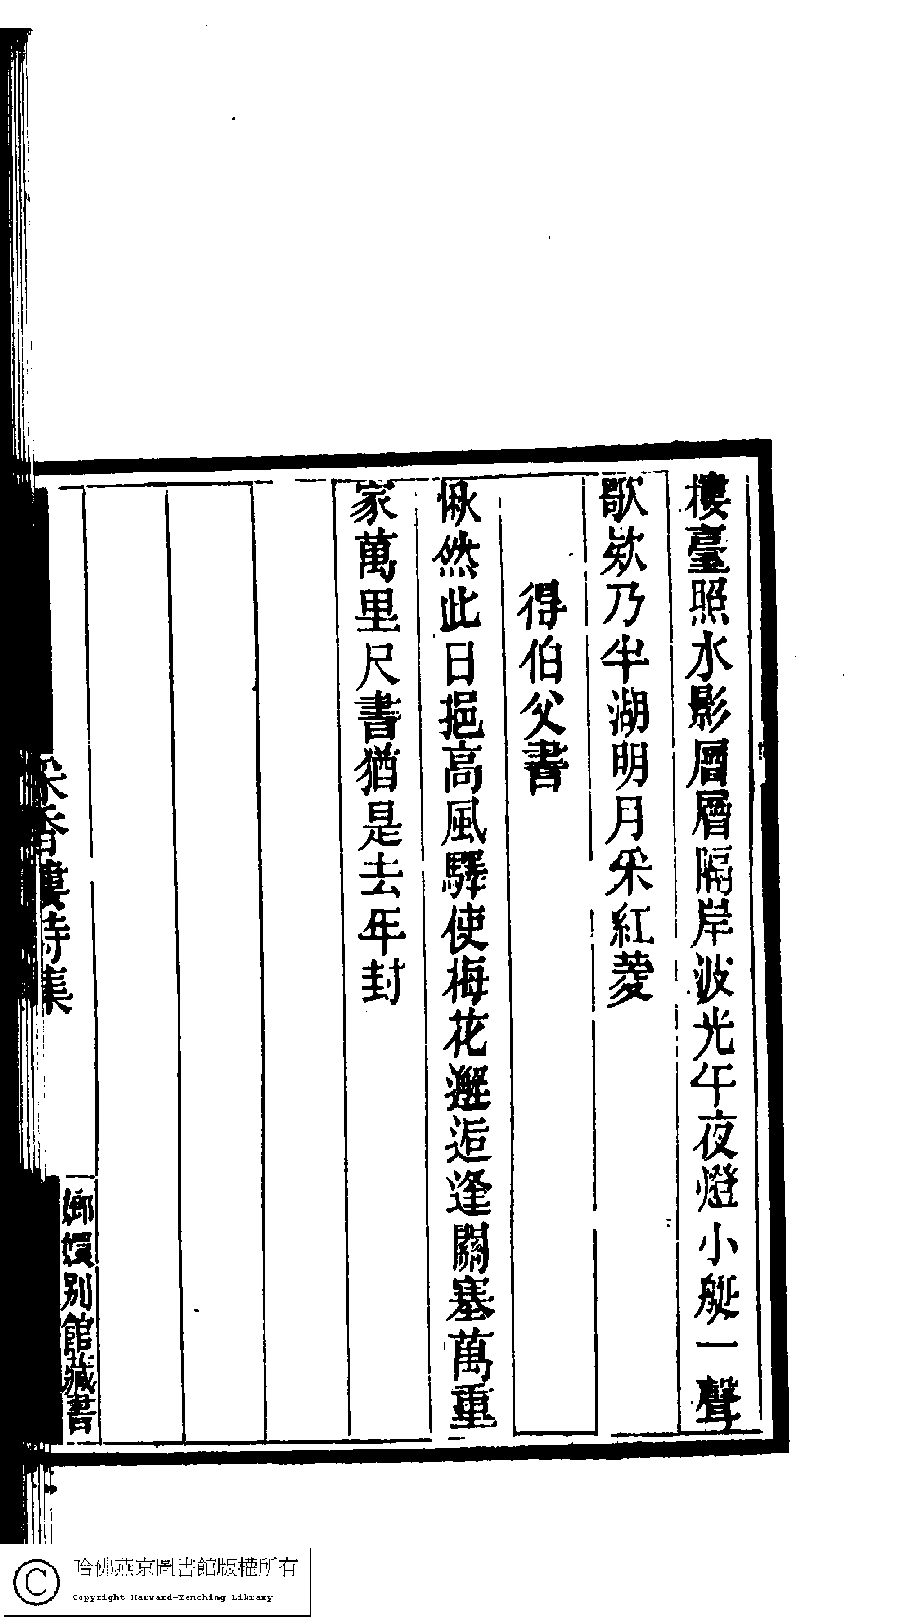 樓臺照水影層層隔岸波光午夜燈小艇一聲
歌欵乃半湖明月采紅菱
得伯父書
愀然此日挹高風驛使梅花邂逅逢關塞萬重
家萬里尺書猶是去年封
采香樓詩集
嫏嬛別館藏書
哈佛燕京圖書館版權所有
Copyright Harvard-Yenching Library